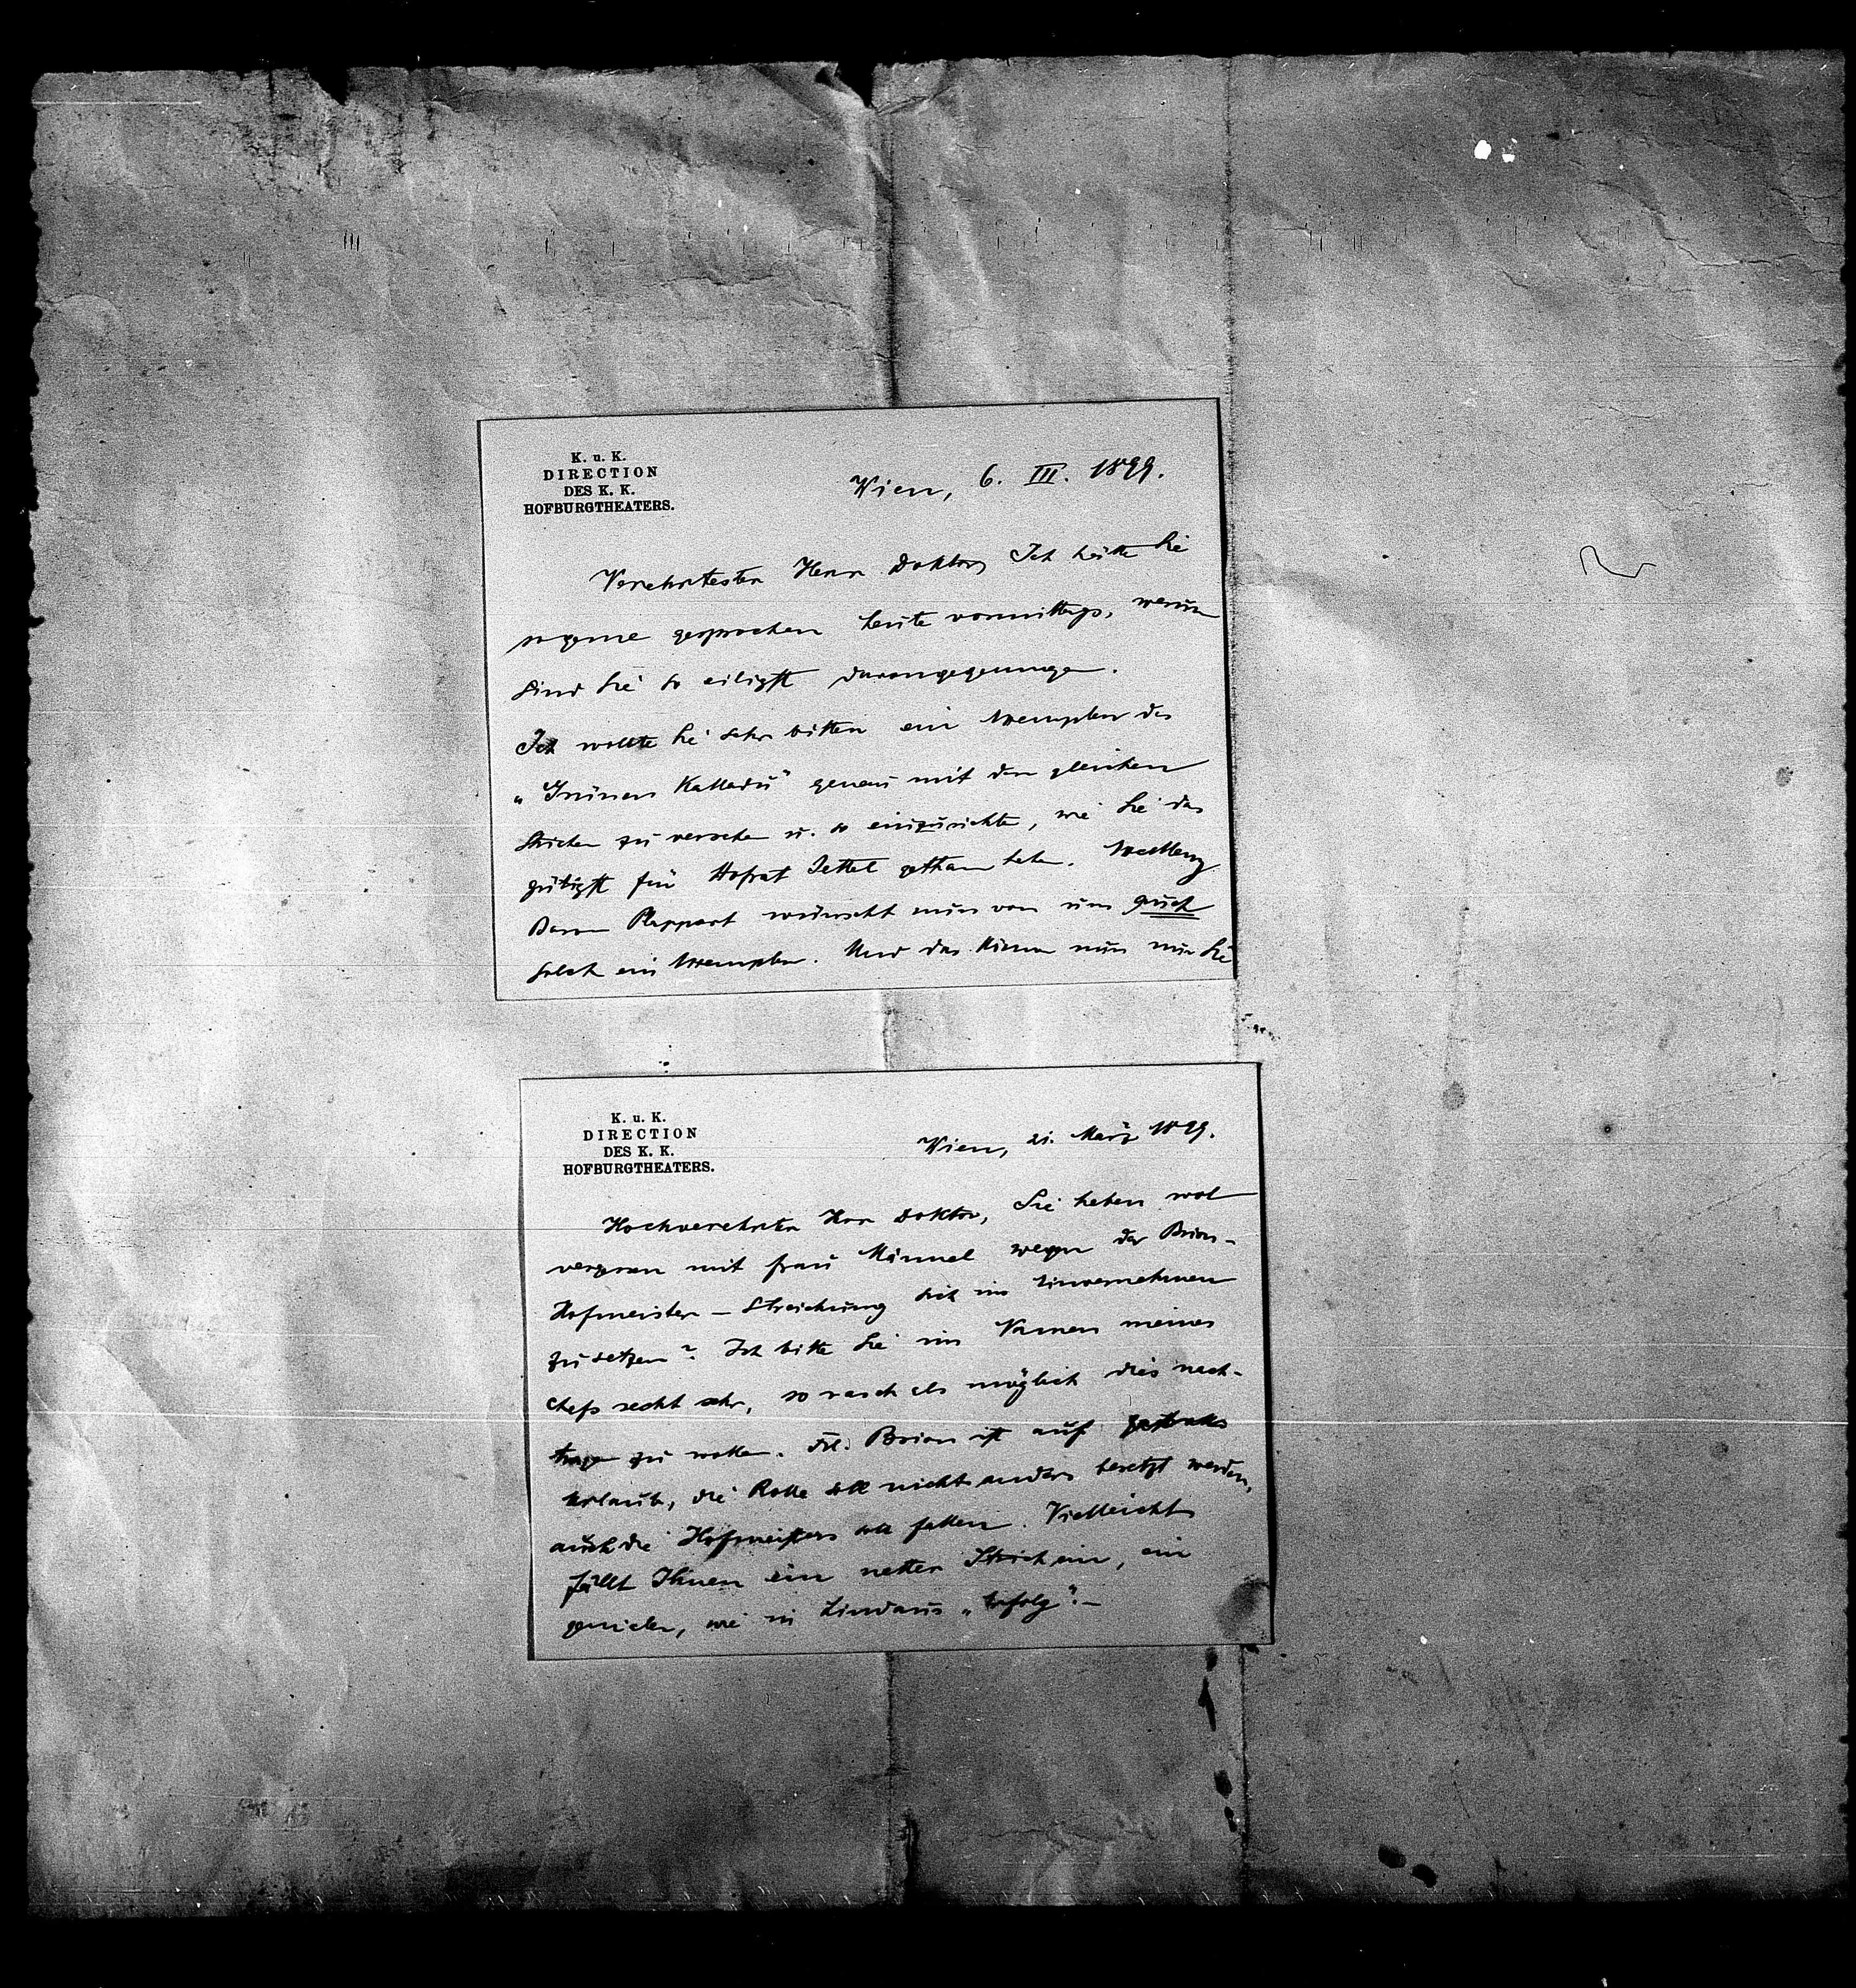 K. u. K.
DIRECTION
DES K. K.
HOFBURGTHEATERS.
Wien, 6. III. 1899.
Verehrtester Herr Doktor, Ich hätte Sie
so gerne gesprochen heute vormittags, warum
sind Sie so eiligst davongegangen.
Ich wollte Sie sehr bitten ein Exemplar des
„Grünen Kakadu" genau mit den gleichen
Strichen zu versehen u. so einzurichten, wie Sie das
gütigst für Hofrat Jettel gethan haben. Exzellenz
Baron Plappart wünscht nun von uns auch
solch ein Exemplar. Und das können nun nur Sie
K. u. K.
DIRECTION
DES K. K.
HOFBURGTHEATERS.
Wien, 21. März 1899.
Hochverehrter Herr Doktor, Sie haben wol
vergessen mit Frau Künnel wegen der Brion-
Hofmeister-Streichung sich ins Einvernehmen
zu setzen? Ich bitte Sie im Namen meines
Chefs recht sehr, so rasch als möglich dies nach-
tragen zu wollen. Frl. Brion ist auf
Urlaub, die Rolle soll nicht anders besetzt werden,
auch die Hofmeisters soll fallen. Vielleicht
fällt Ihnen ein netter Strich ein, ein
genialer, wie in Lindaus „Erfolg".–